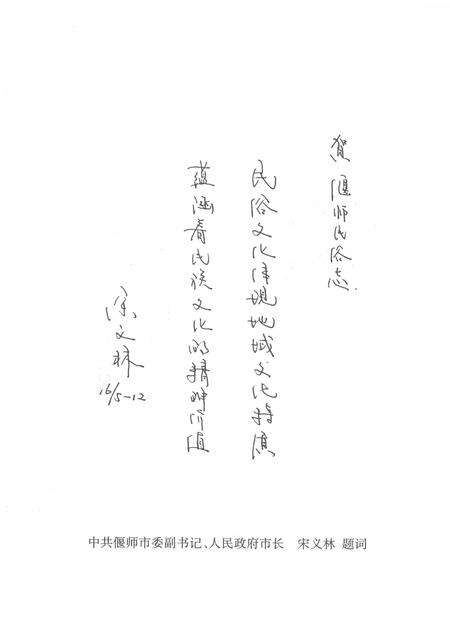 贺偃师民俗志
民俗文化体现地域文化特质
蕴涵着民族文化的精神价值
宋义林
16/5-12
中共偃师市委副书记、人民政府市长 宋义林 题词